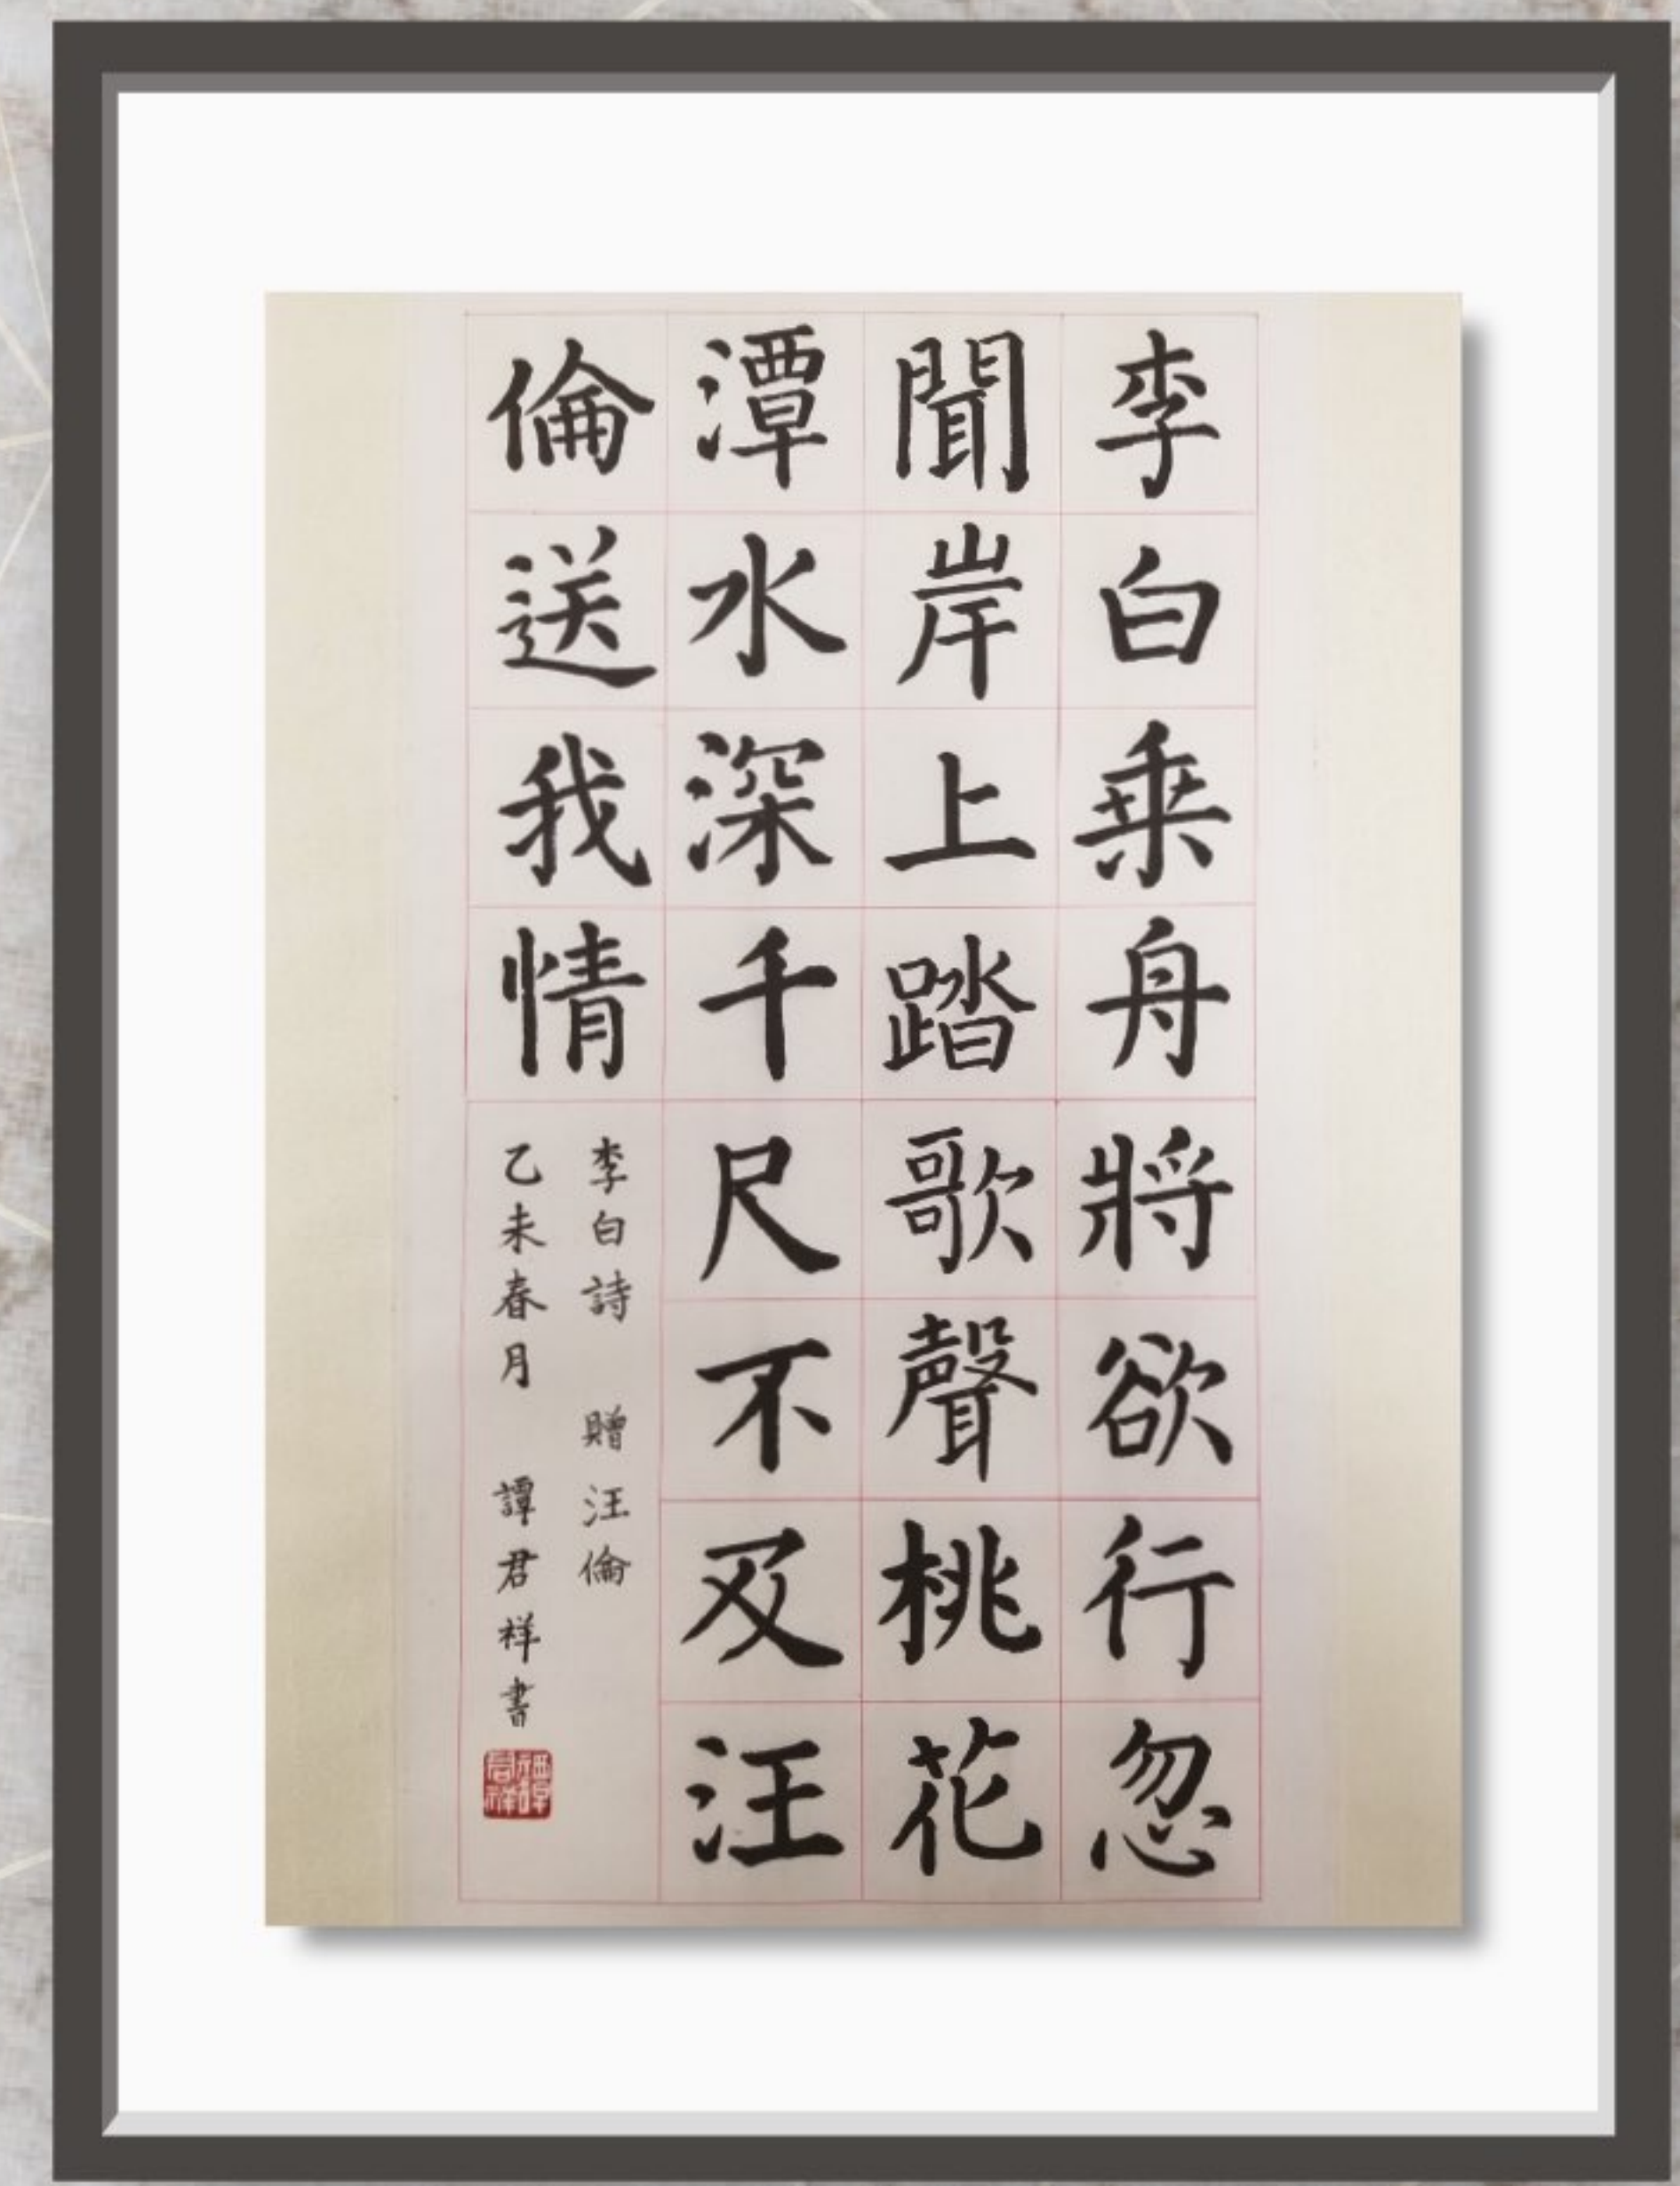 李白乗舟將欲行忽
聞岸上踏歌聲桃花
潭水深千尺不及汪
倫送我情
李白詩 贈汪倫
乙未春月 譚君祥書
譚君祥印